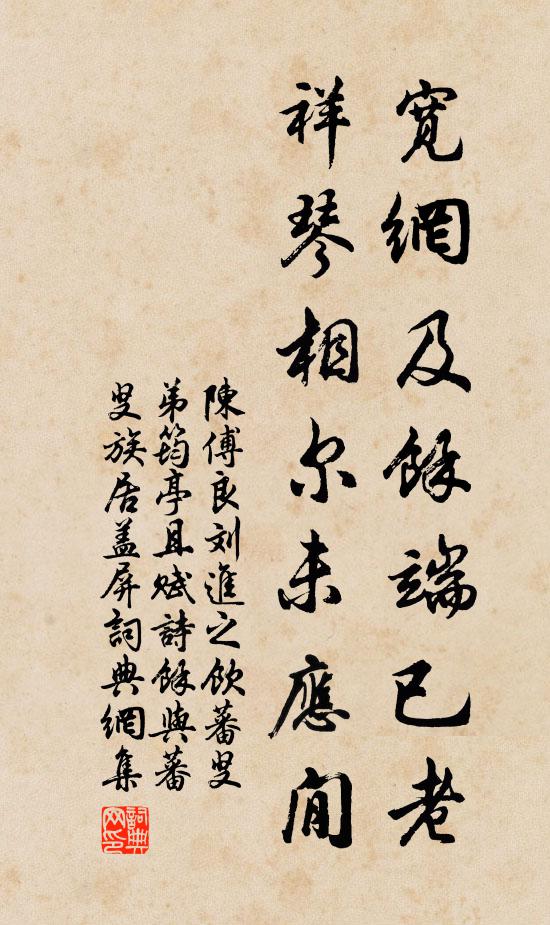 寬網及餘端已老
祥琴相尔未應閒
陳傅良刘進之飲蕃叟
弟筠亭且赋詩餘與蕃
叟族居盖屏詞典網集
詞典网印